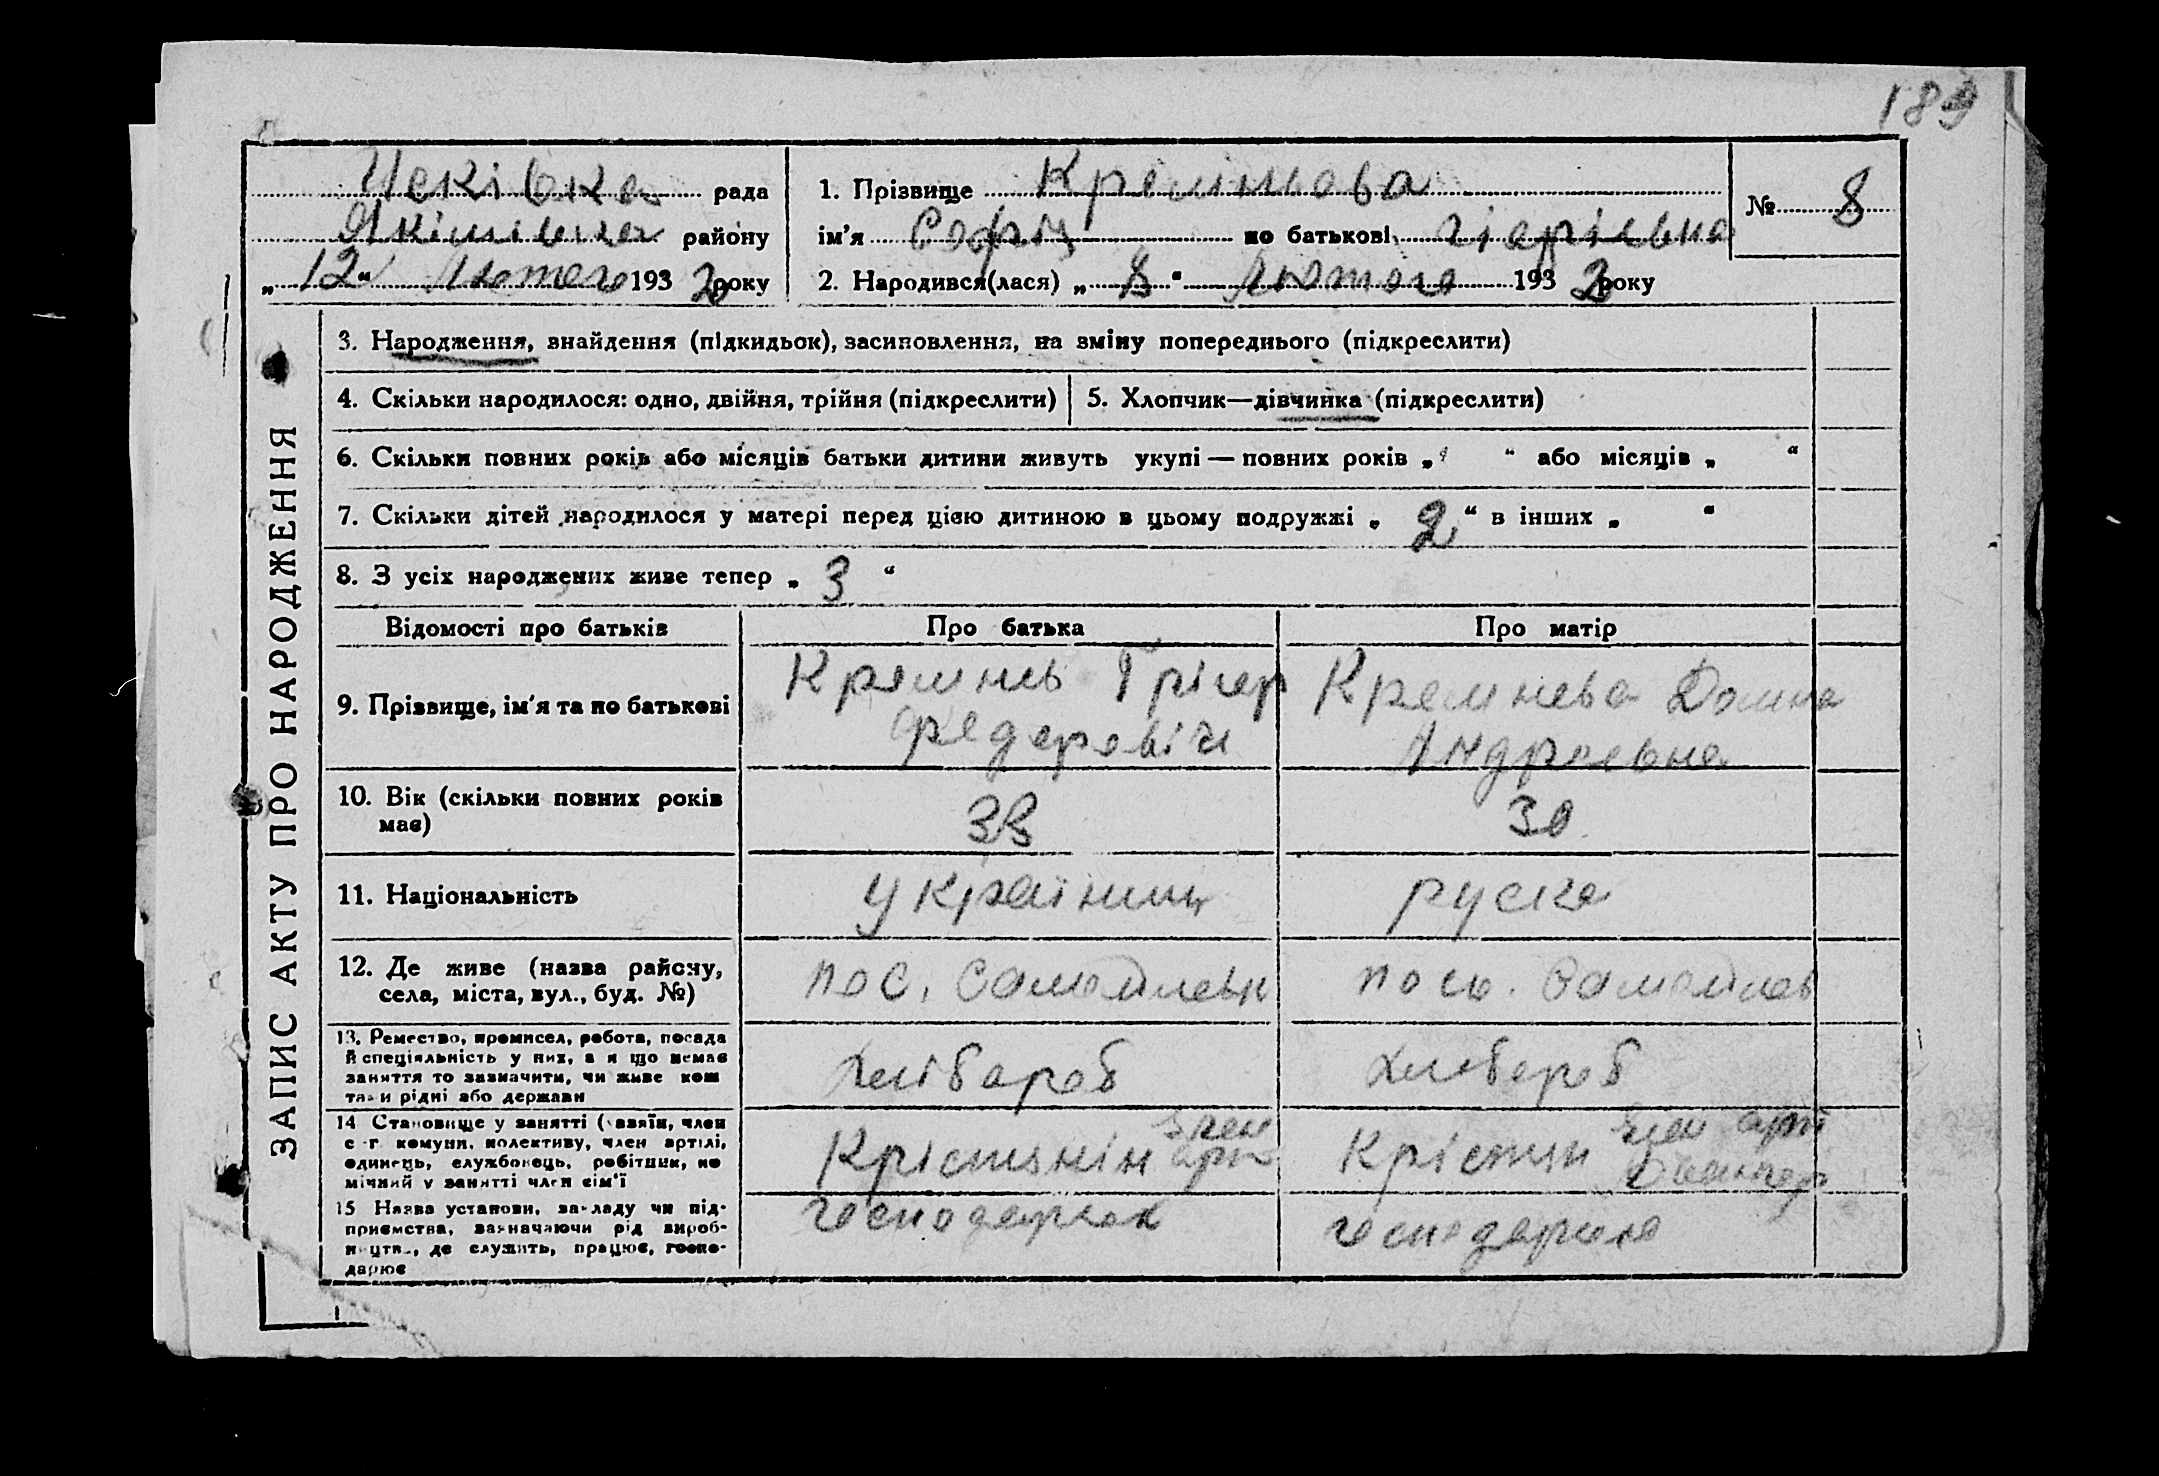 189
Исківка рада
Якімівка району
„ 12 “ Лютого 193 2 року
1. Прізвище Кремінова
ім'я Софія по батькові
2. Народився(лася) „ 8 “ Лютого 193 2 року
№ 8
ЗАПИС АКТУ ПРО НАРОДЖЕННЯ
3. Народження, внайдення (підкидьок), засиновлення, на зміну попереднього (підкреслити)
4. Скільки народилося: одно, двійня, трійня (підкреслити)
5. Хлопчик—дівчинка (підкреслити)
6. Скільки повних років або місяців батьки дитини живуть укупі — повних років „ “ або місяців „ “
7. Скільки дітей народилося у матері перед цією дитиною в цьому подружжі „ 2 “ в інших „ “
8. З усіх народжених живе тепер „ 3 “
Відомості про батьків
Про батька
Про матір
9. Прізвище, ім'я та по батькові
Кремнев Грігер
Федеревіч
Кремнева Домна
Андреевна
10. Вік (скільки повних років
має)
33
30
11. Національність
українец
руска
12. Де живе (назва району,
села, міста, вул., буд. №)
пос.
посо.
13. Ремество, промисел, робота, посада
й спеціяльність у них, а я що немає
заняття то зазначити, чи живе кош
тами рідні або держави
Хлібароб
Хлебероб
14 Становище у занятті (хазяїн, член
с.-г. комуни, колективу, член артілі,
одинець, службовець, робітник, по
мічний у занятті член сім'ї
Крістянін член
арт
Крістян член арт
15 Назва установи, закладу чи під-
приємства, зазначаючи рід вироб-
ництва, де служить, працює, госпо-
дарює
господарює